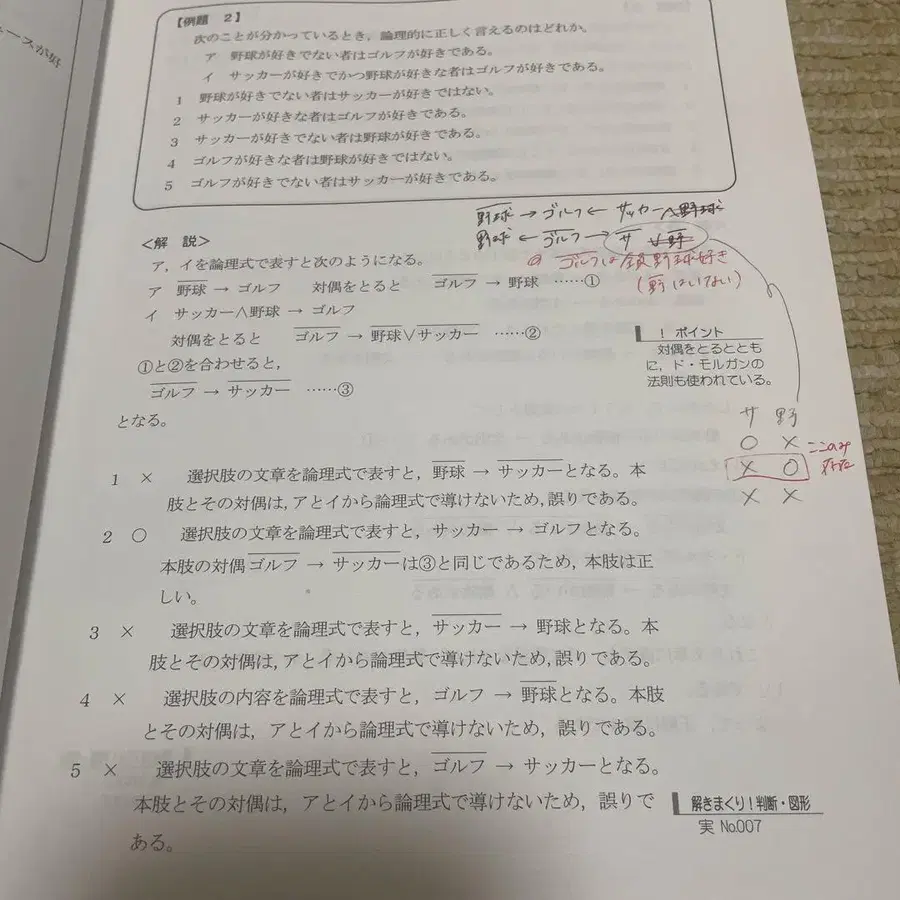 ースが好
【例題 2】
次のことが分かっているとき，論理的に正しく言えるのはどれか。
ア 野球が好きでない者はゴルフが好きである。
イ サッカーが好きでかつ野球が好きな者はゴルフが好きである。
1 野球が好きでない者はサッカーが好きではない。
2 サッカーが好きな者はゴルフが好きである。
3 サッカーが好きでない者は野球が好きである。
4 ゴルフが好きな者は野球が好きではない。
5 ゴルフが好きでない者はサッカーが好きである。
野球 → ゴルフ ← サッカー∧野球
野球 ← ゴルフ → サ ∨ 野
＜解 説＞
ア，イを論理式で表すと次のようになる。
ゴルフは全員野球好き
(野はいない)
ア 野球 → ゴルフ 対偶をとると ゴルフ → 野球 ……①
イ サッカー∧野球 → ゴルフ
対偶をとると ゴルフ → 野球∨サッカー ……②
①と②を合わせると，
ゴルフ → サッカー ……③
となる。
！ ポイント
対偶をとるととも
に，ド・モルガンの
法則も使われている。
サ 野
○ ×
× ○
× ×
ここのみ
存在
1 × 選択肢の文章を論理式で表すと，野球 → サッカーとなる。本
肢とその対偶は，アとイから論理式で導けないため，誤りである。
2 ○ 選択肢の文章を論理式で表すと，サッカー → ゴルフとなる。
本肢の対偶ゴルフ → サッカーは③と同じであるため，本肢は正
しい。
3 × 選択肢の文章を論理式で表すと，サッカー → 野球となる。本
肢とその対偶は，アとイから論理式で導けないため，誤りである。
4 × 選択肢の内容を論理式で表すと，ゴルフ → 野球となる。本肢
とその対偶は，アとイから論理式で導けないため，誤りである。
5 × 選択肢の文章を論理式で表すと，ゴルフ → サッカーとなる。
本肢とその対偶は，アとイから論理式で導けないため，誤りで
ある。
解きまくり！判断・図形
実 No.007